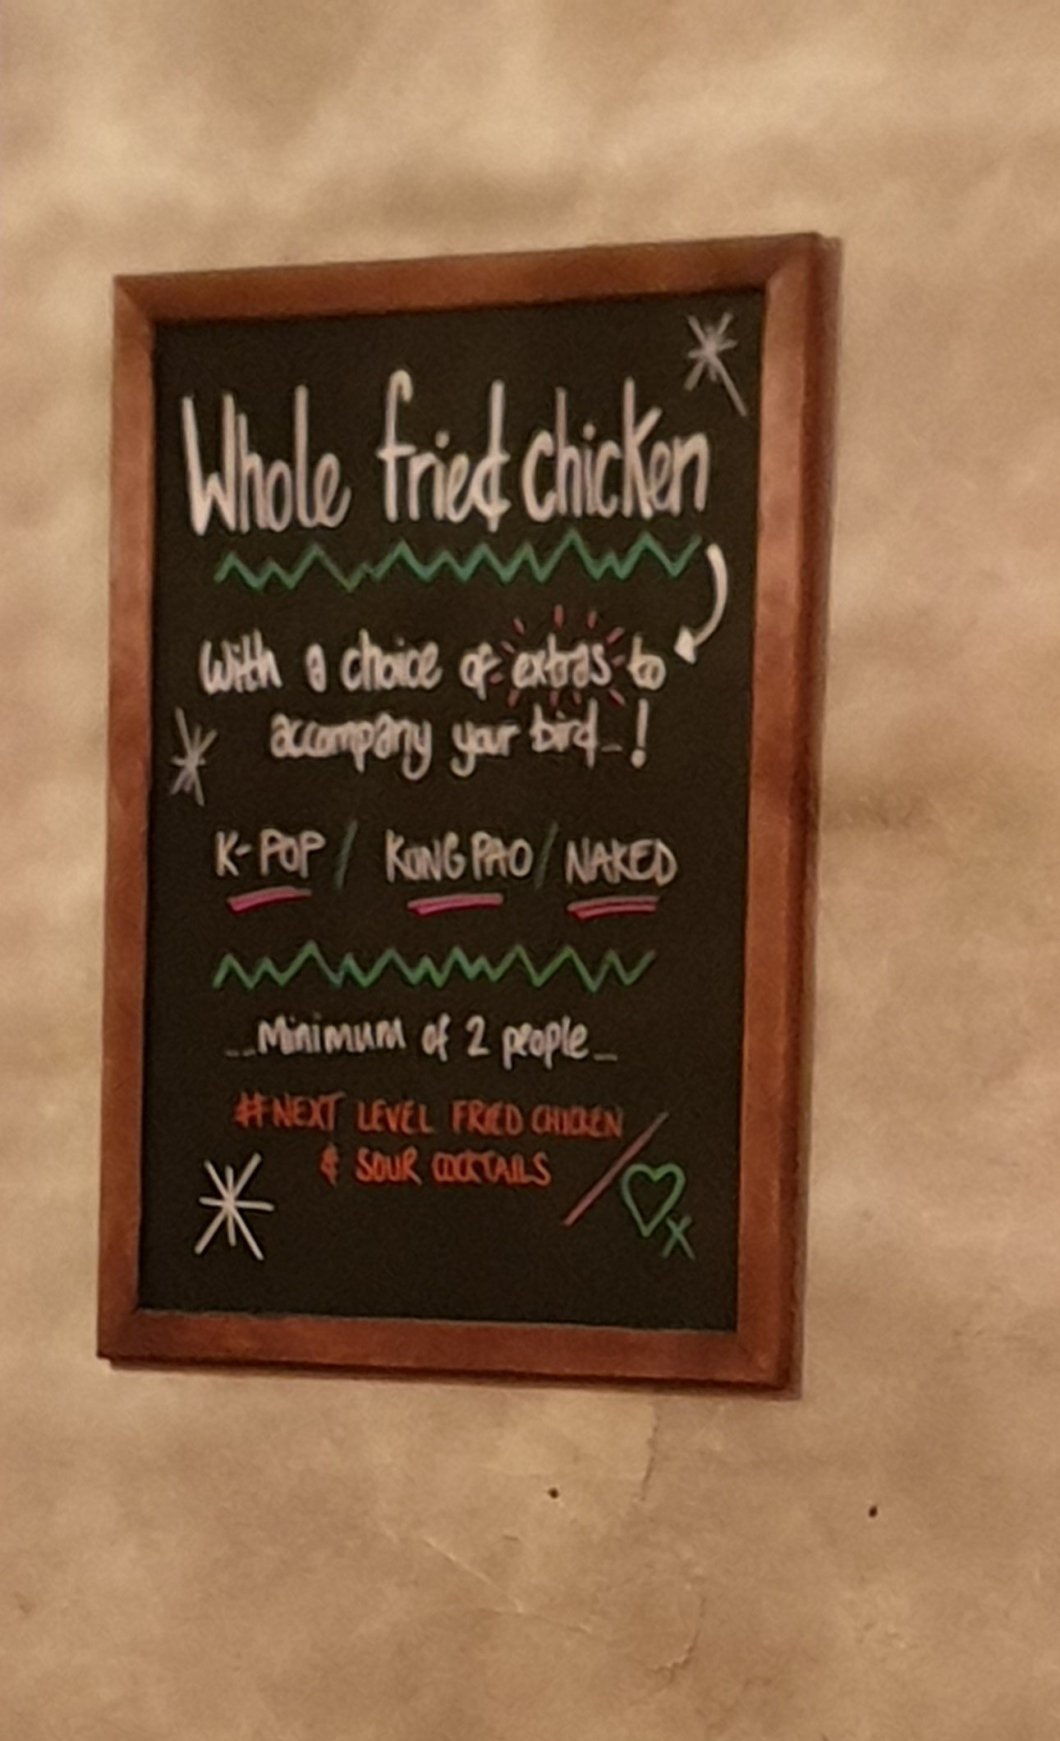 Whole fried chicken
With a choice of extras to
accompany your bird...!
K-POP / KUNG PAO / NAKED
...Minimum of 2 people...
#NEXT LEVEL FRIED CHICKEN
& SOUR COCKTAILS
x